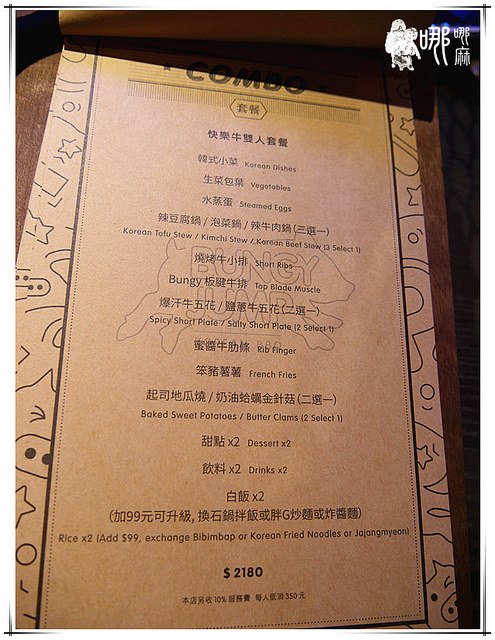 哪哪麻
COMBO
套餐
快樂牛雙人套餐
韓式小菜 Korean Dishes
生菜包葉 Vegetables
水蒸蛋 Steamed Eggs
辣豆腐鍋 / 泡菜鍋 / 辣牛肉鍋(三選一)
Korean Tofu Stew / Kimchi Stew / Korean Beef Stew (3 Select 1)
燒烤牛小排 Short Ribs
Bungy 板腱牛排 Top Blade Muscle
爆汗牛五花 / 鹽蔥牛五花(二選一)
Spicy Short Plate / Salty Short Plate (2 Select 1)
蜜醬牛肋條 Rib Finger
笨豬薯薯 French Fries
起司地瓜燒 / 奶油蛤蠣金針菇(二選一)
Baked Sweet Potatoes / Butter Clams (2 Select 1)
甜點 x2 Dessert x2
飲料 x2 Drinks x2
白飯 x2
(加99元可升級, 換石鍋拌飯或胖G炒麵或炸醬麵)
Rice x2 (Add $99, exchange Bibimbap or Korean Fried Noodles or Jajangmyeon)
$ 2180
本店另收 10% 服務費 每人低消 350 元
BUNGY
JUMP
BBQ